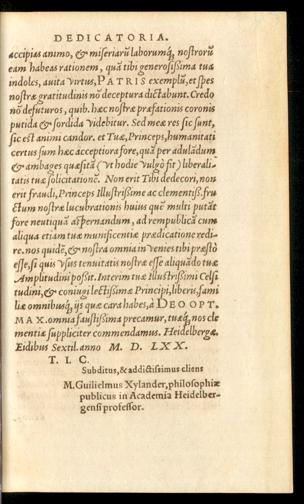 DEDICATORIA.
accipias animo, & miseriarū laborumq́; nostrorū
eam habeas rationem, quā tibi generosissima tua
indoles, auita virtus, PATRIS exemplū, et spes
nostræ gratitudinis nō deceptura dictabunt. Credo
nō defuturos, quib. hæc nostræ præfationis coronis
putida & sordida videbitur. Sed meæ res sic sunt,
sic est animi candor. et Tuæ, Princeps, humanitati
certus sum hæc acceptiora fore, quā per adulādum
& ambages quæsita (vt hodie vulgò fit) liberali-
tatis tuæ solicitationē. Non erit Tibi dedecori, non
erit fraudi, Princeps Illustrissime ac clementiss. fru
ctum nostræ lucubrationis huius quē multi putāt
fore neutiquā aspernandum, ad rempublicā cum
aliqua etiam tuæ munificentiæ prædicatione redi-
re. nos quidē, & nostra omnia inuenies tibi præsto
esse, si quis vsus tenuitatis nostræ esse aliquādo tuæ
Amplitudini possit. Interim tuæ Illustrissimi Celsi
tudini, & coniugi lectissimæ Principi, liberis, fami
liæ omnibusq́; ijs quæ cara habes, à DEO OPT.
MAX. omnia faustissima precamur, tuæq́; nos cle
mentiæ suppliciter commendamus. Heidelbergæ,
Eidibus Sextil. anno M. D. LXX.
T. I. C.
Subditus, & addictissimus cliens
M. Guilielmus Xylander, philosophiæ
publicus in Academia Heidelber-
gensi professor.